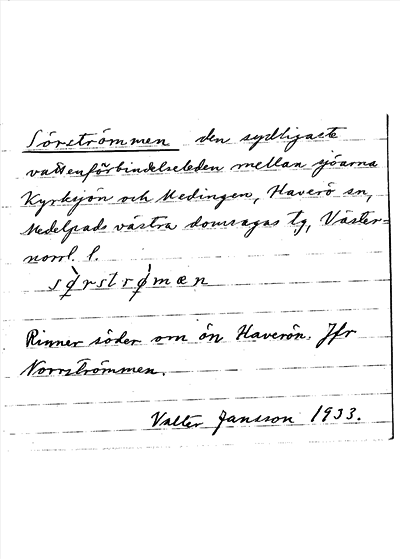 Sörströmmen den sydligaste
vattenförbindelseleden mellan sjöarna
Kyrksjön och Medingen, Haverö sn,
Medelpads västra domsagas tg, Väster-
norrl. l.
sø̀rstrǿmæn
Rinner söder om ön Haverön. Jfr
Norrströmmen.
Valter Jansson 1933.